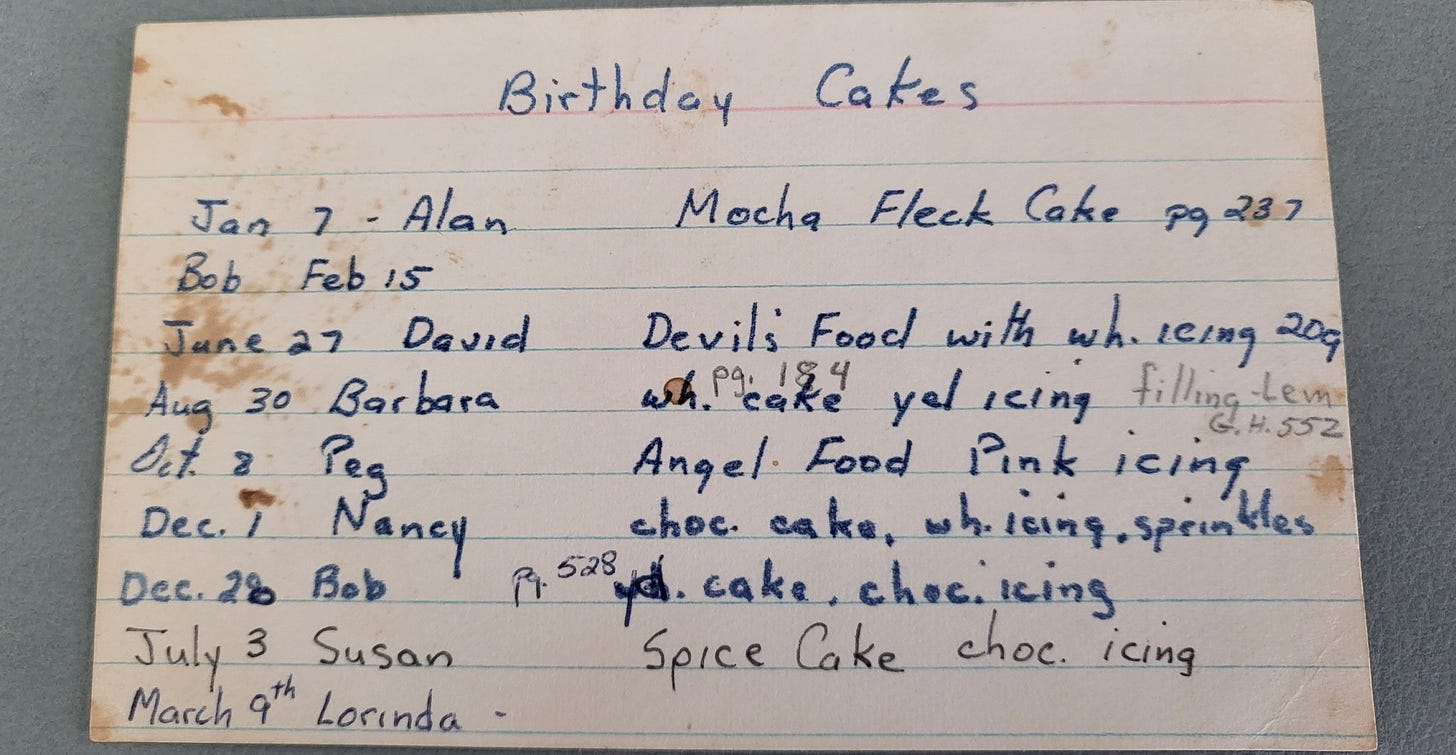 Birthday Cakes
Jan 7 - Alan Mocha Fleck Cake pg 237
Bob Feb 15
June 27 David Devil's Food with wh. icing 209
pg. 184
Aug 30 Barbara wh. cake yel icing filling-Lem
G.H. 552
Oct. 8 Peg Angel Food Pink icing
Dec. 1 Nancy choc. cake, wh. icing, sprinkles
Dec. 28 Bob pg. 528 yel. cake, choc. icing
July 3 Susan Spice Cake choc. icing
March 9th Lorinda -